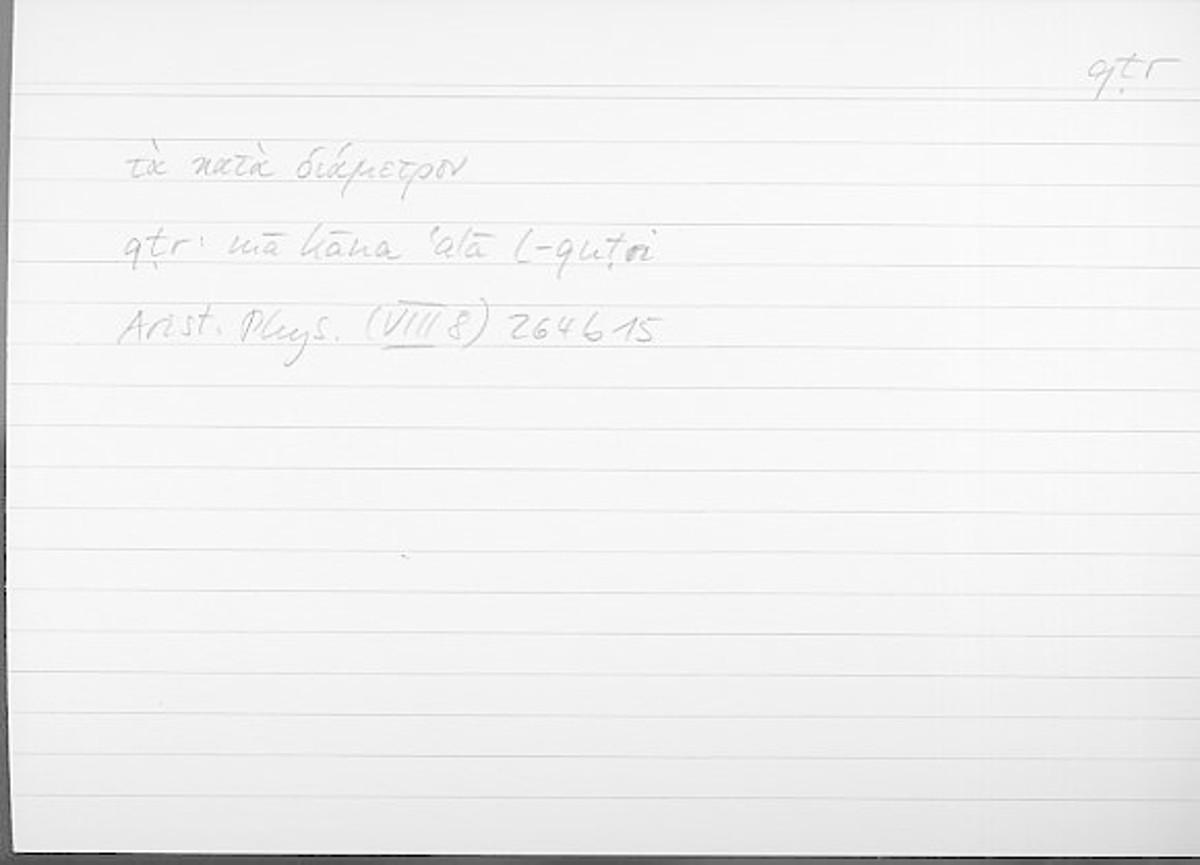 qṭr
τὰ κατὰ διάμετρον
qṭr: mā kāna ʿalā l-quṭri
Arist. Phys. (VIII 8) 264 b 15